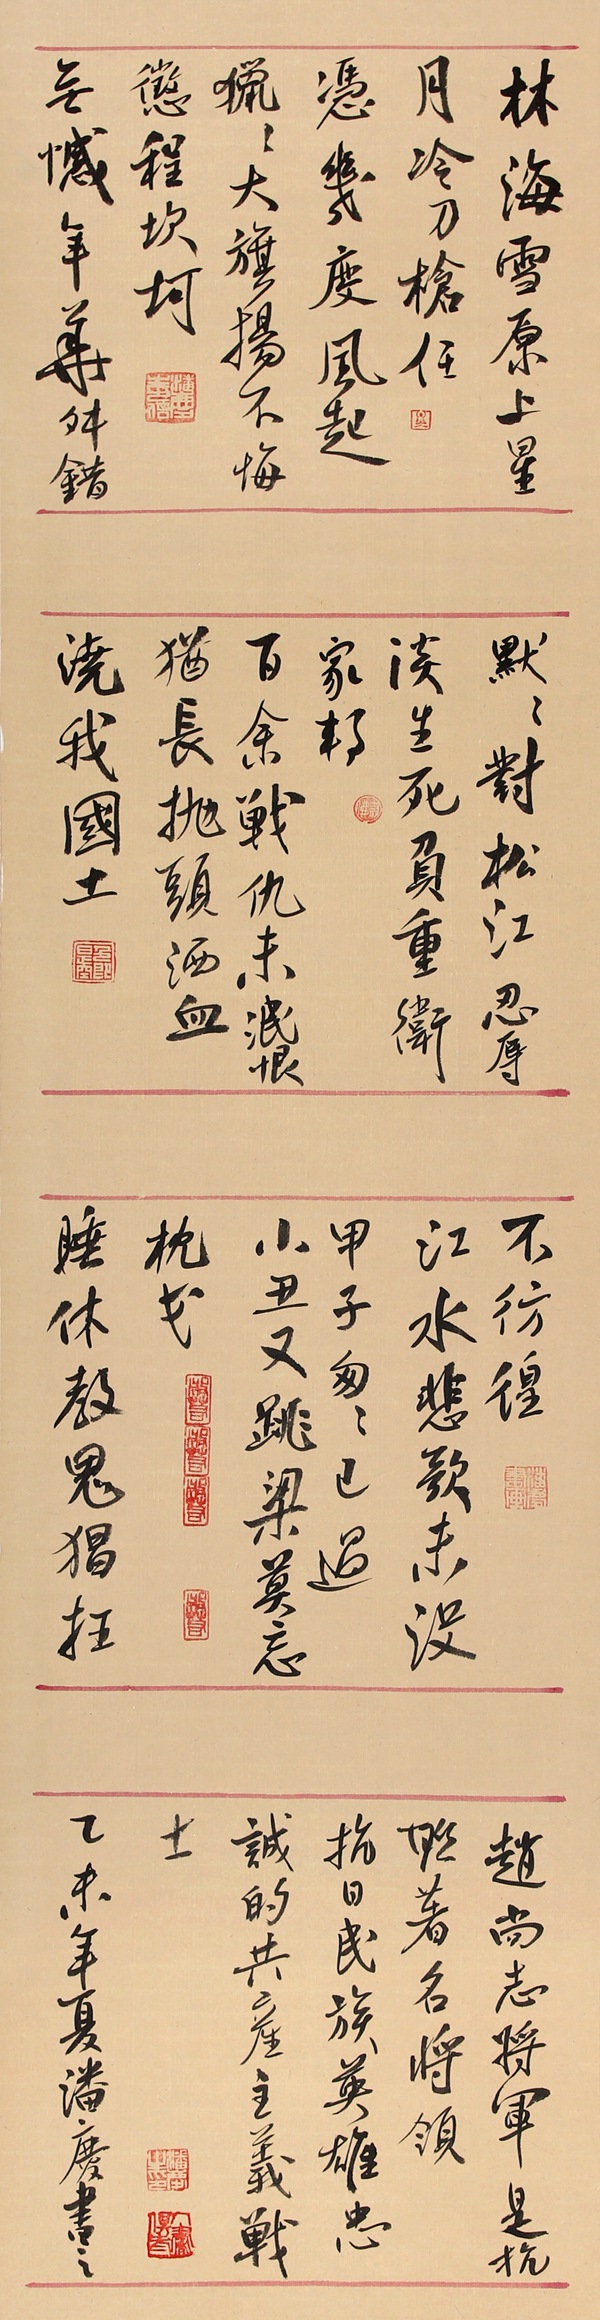 林海雪原上星
月冷刀槍任
憑幾度風起
獵々大旗揚不悔
愆程坎坷
無憾年華舛錯
默々對松江忍辱
淡生死負重衛
家邦
百余戰仇未泯恨
猶長拋頭洒血
澆我國土
不彷徨
江水悲歌未没
甲子匆々已過
小丑又跳梁莫忘
枕戈
睡休教鬼猖狂
趙尚志將軍是抗
聯著名將領
抗日民族英雄忠
誠的共產主義戰
士
乙未年夏潘慶書之